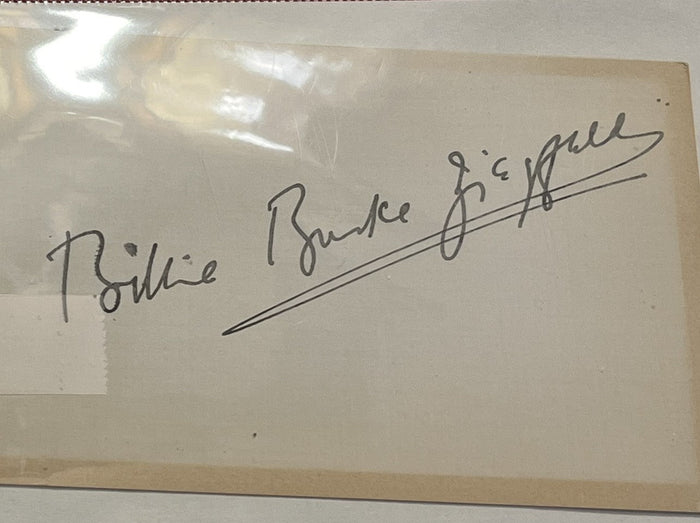 Billie Burke Ziegfeld